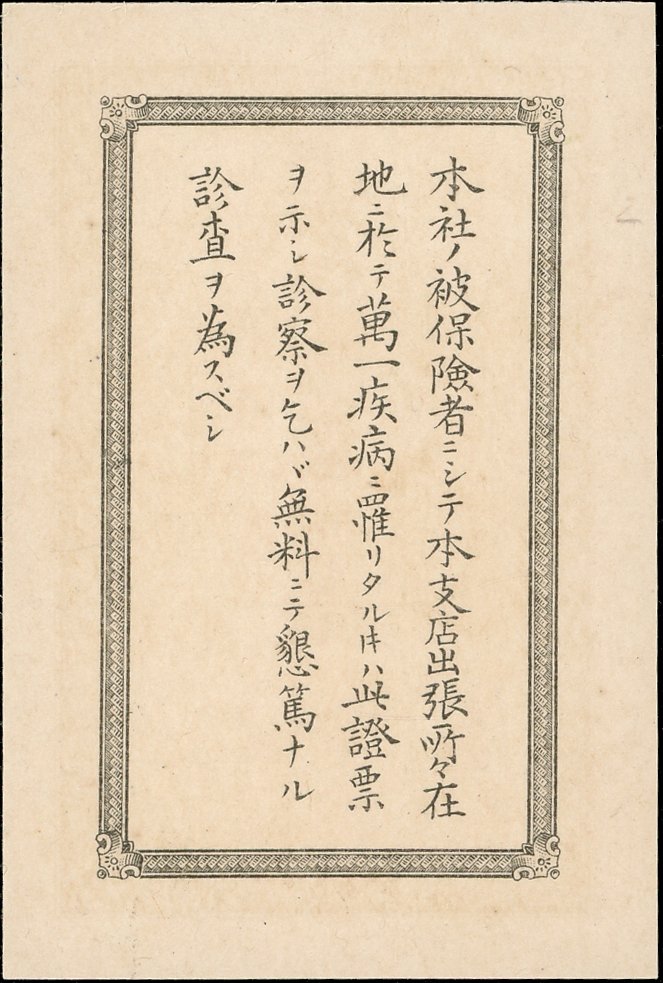 本社ノ被保險者ニシテ本支店出張所々在
地ニ於テ萬一疾病ニ罹リタル𪜈ハ此證票
ヲ示シ診察ヲ乞ハヾ無料ニテ懇篤ナル
診査ヲ為スベシ